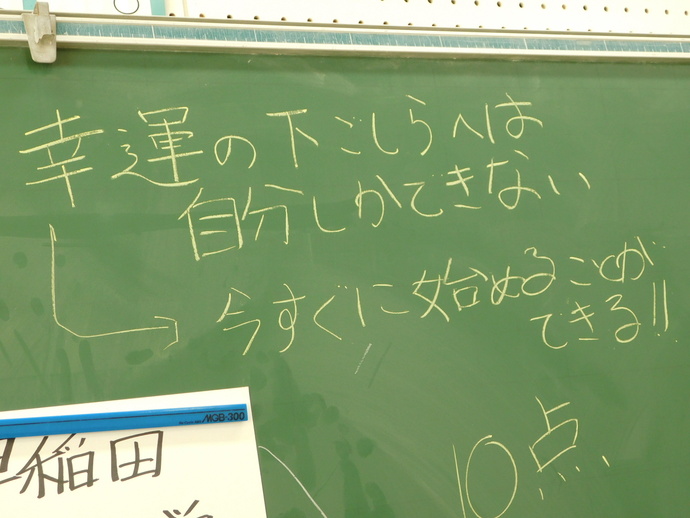 幸運の下ごしらへは
自分しかできない
今すぐに始めることが
できる!!
MGB-300
早稲田
10点